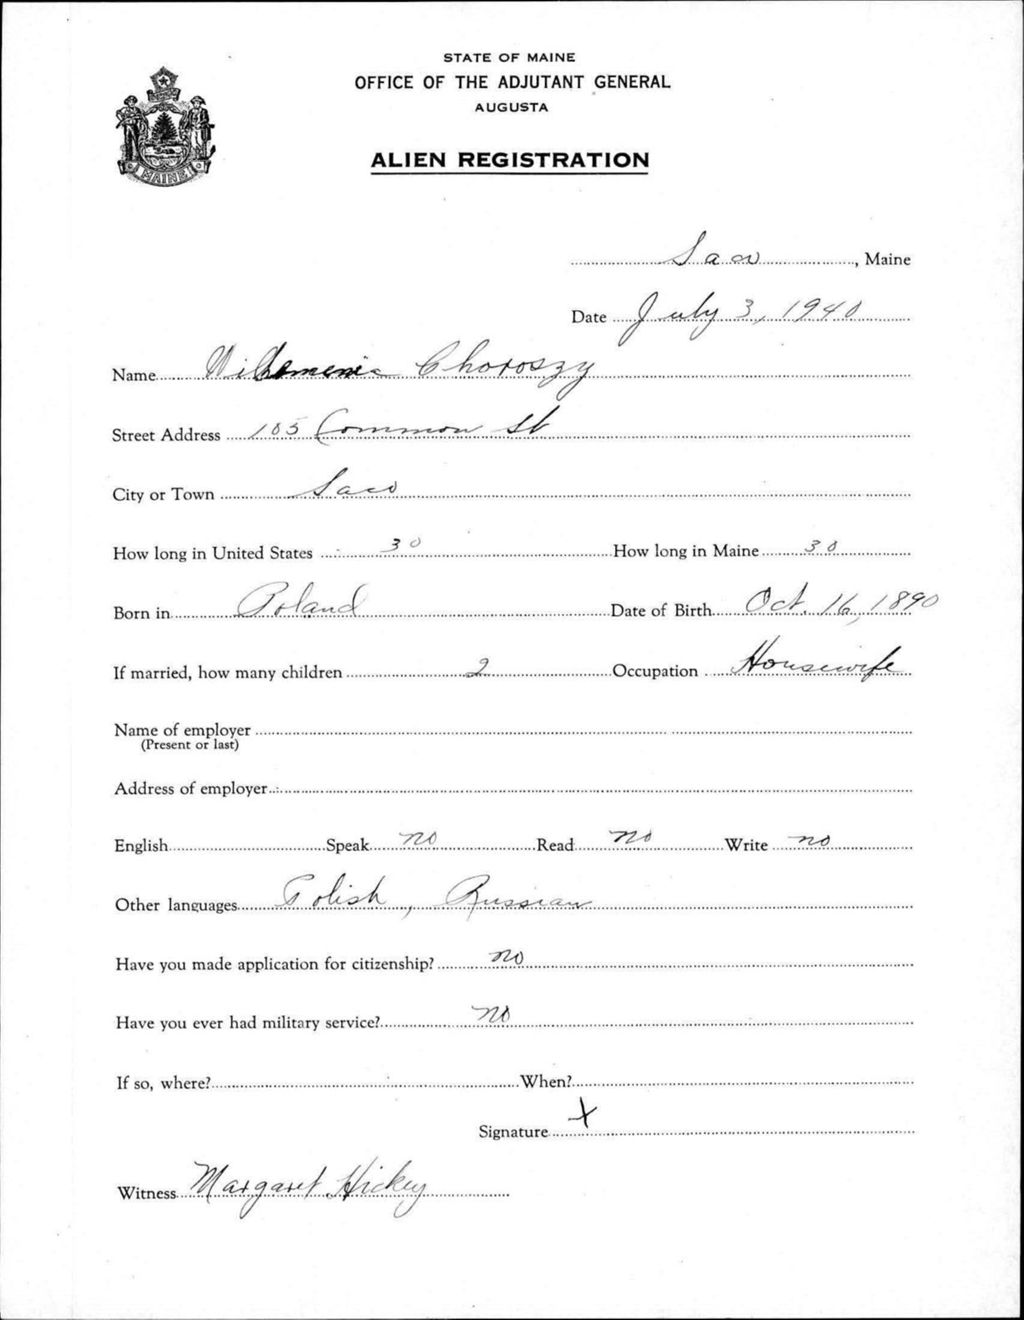 STATE OF MAINE
OFFICE OF THE ADJUTANT GENERAL
AUGUSTA
ALIEN REGISTRATION
MAINE
Saco, Maine
Date July 3, 1940
Name Choroszy
Street Address 105 Common St
City or Town Saco
How long in United States 30 How long in Maine 30
Born in Poland Date of Birth Oct. 16, 1890
If married, how many children 2 Occupation Housewife
Name of employer
(Present or last)
Address of employer
English Speak no Read no Write no
Other languages Polish, Russian
Have you made application for citizenship? no
Have you ever had military service? no
If so, where? When?
Signature X
Witness Margaret Hickey